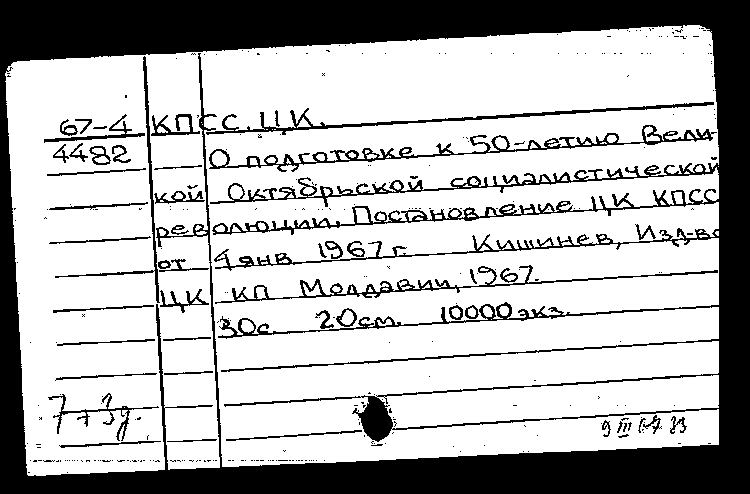 67-4 КПСС. ЦК.
4482 О подготовке к 50-летию Вели-
кой Октябрьской социалистической
революции. Постановление ЦК КПСС
от 4 янв 1967 г. Кишинев, Изд-во
ЦК КП Молдавии, 1967.
30с. 20см. 10000 экз.
7+3д.
9 III